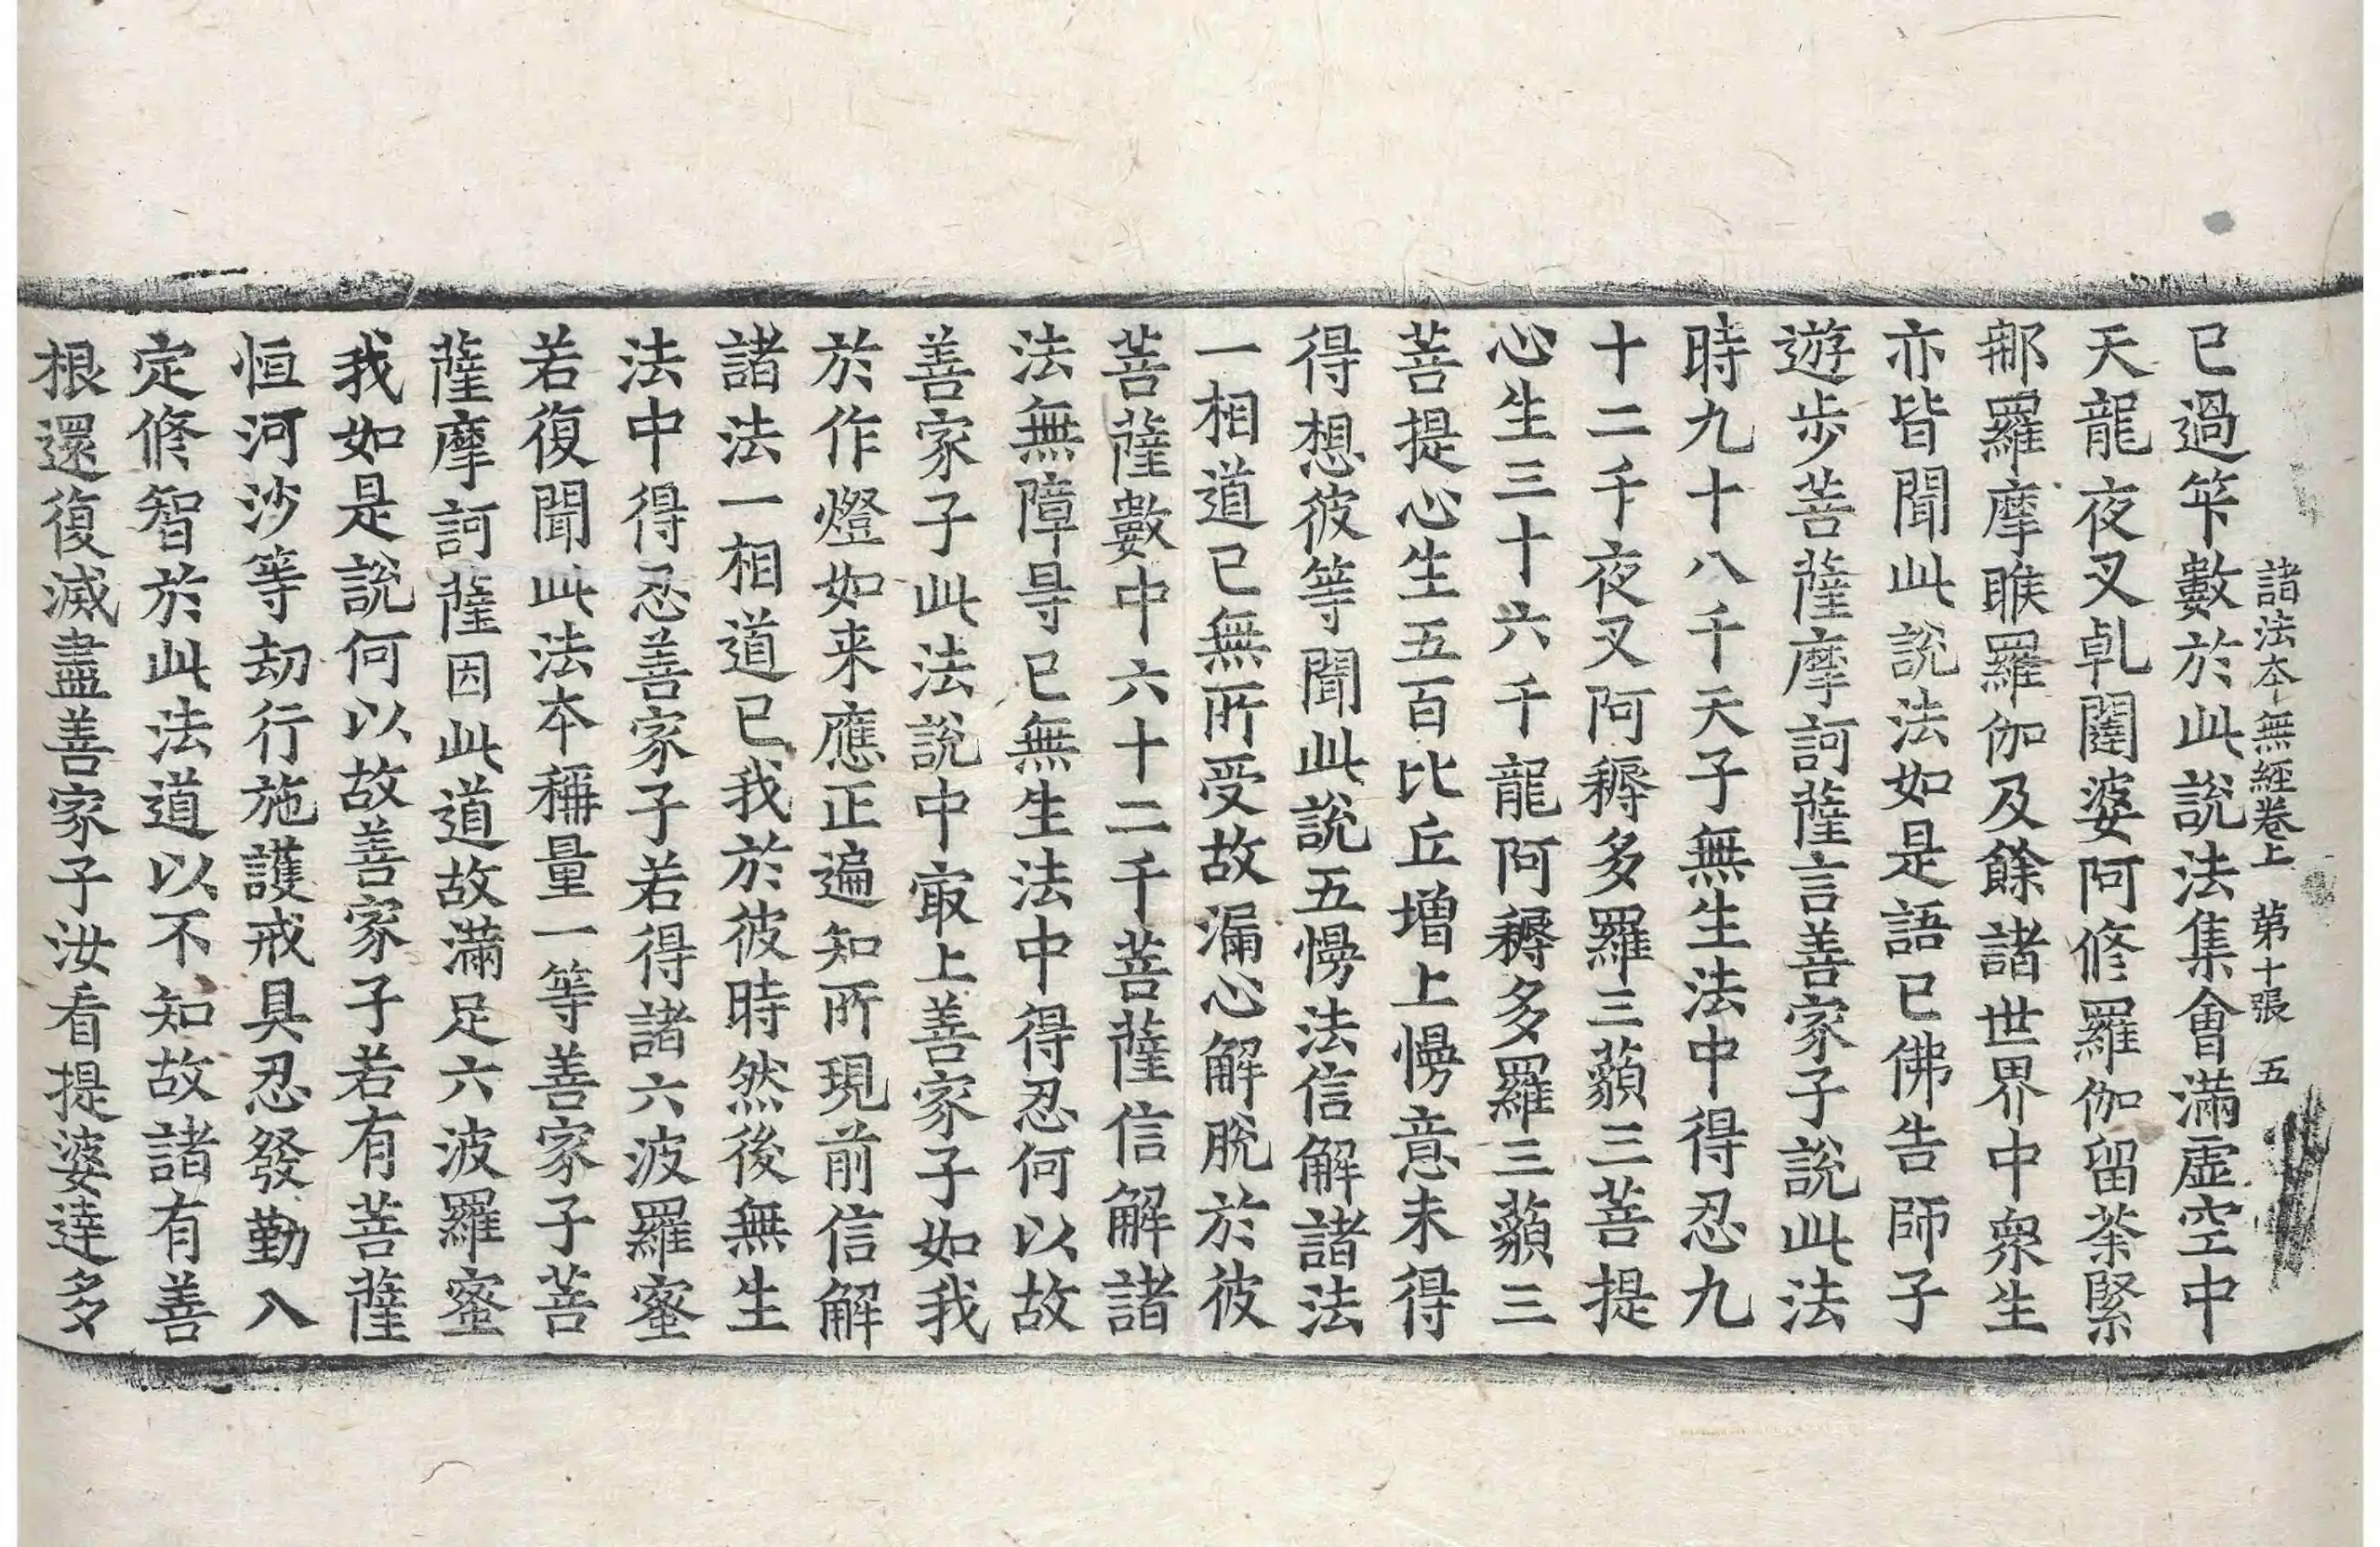 諸法本無經卷上 苐十張 五
已過筭數於此說法集會滿虛空中
天龍夜叉乹闥婆阿修羅伽留茶緊
那羅摩睺羅伽及餘諸世界中衆生
亦皆聞此說法如是語已佛告師子
遊步菩薩摩訶薩言善家子說此法
時九十八千天子無生法中得忍九
十二千夜叉阿耨多羅三藐三菩提
心生三十六千龍阿耨多羅三藐三
菩提心生五百比丘增上慢意未得
得想彼等聞此說五慢法信解諸法
一相道已無所受故漏心解脫於彼
菩薩數中六十二千菩薩信解諸
法無障㝵已無生法中得忍何以故
善家子此法說中㝡上善家子如我
於作燈如来應正遍知所現前信解
諸法一相道已我於彼時然後無生
法中得忍善家子若得諸六波羅蜜
若復聞此法本稱量一等善家子菩
薩摩訶薩因此道故滿足六波羅蜜
我如是說何以故善家子若有菩薩
恒河沙等劫行施護戒具忍發勤入
定修智於此法道以不知故諸有善
根還復滅盡善家子汝看提婆達多